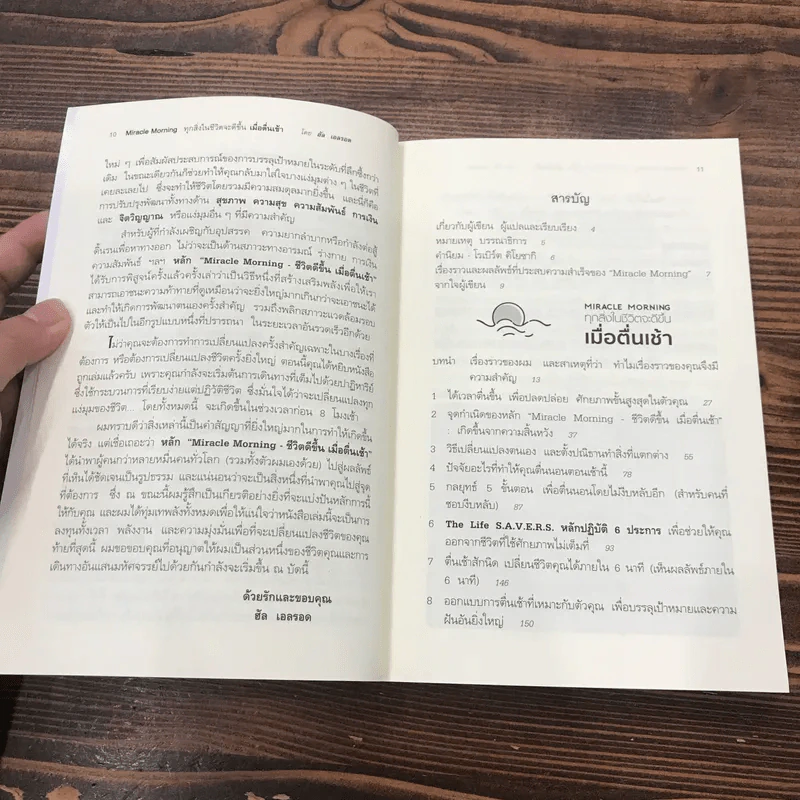 10 Miracle Morning ทุกสิ่งในชีวิตจะดีขึ้น เมื่อตื่นเช้า โดย ฮัล เอลรอด
ใหม่ ๆ เพื่อสัมผัสประสบการณ์ของการบรรลุเป้าหมายในระดับที่ลึกซึ้งกว่า
เดิม ในขณะเดียวกันก็ช่วยทำให้คุณกลับมาใส่ใจบางแง่มุมต่าง ๆ ในชีวิตที่
เคยละเลยไป ซึ่งจะทำให้ชีวิตโดยรวมมีความสมดุลมากยิ่งขึ้น และนี่ก็คือ
การปรับปรุงพัฒนาทั้งทางด้าน สุขภาพ ความสุข ความสัมพันธ์ การเงิน
และ จิตวิญญาณ หรือแง่มุมอื่น ๆ ที่มีความสำคัญ
สำหรับผู้ที่กำลังเผชิญกับอุปสรรค ความยากลำบากหรือกำลังต่อสู้
ดิ้นรนเพื่อหาทางออก ไม่ว่าจะเป็นด้านสภาวะทางอารมณ์ ร่างกาย การเงิน
ความสัมพันธ์ ฯลฯ หลัก “Miracle Morning - ชีวิตดีขึ้น เมื่อตื่นเช้า”
ได้รับการพิสูจน์ครั้งแล้วครั้งเล่าว่าเป็นวิธีหนึ่งที่สร้างเสริมพลังเพื่อให้เรา
สามารถเอาชนะความท้าทายที่ดูเหมือนว่าจะยิ่งใหญ่มากเกินกว่าจะเอาชนะได้
และทำให้เกิดการพัฒนาตนเองครั้งสำคัญ รวมถึงพลิกสภาวะแวดล้อมรอบ
ตัวให้เป็นไปในอีกรูปแบบหนึ่งที่ปรารถนา ในระยะเวลาอันรวดเร็วอีกด้วย
ไม่ว่าคุณจะต้องการทำการเปลี่ยนแปลงครั้งสำคัญเฉพาะในบางเรื่องที่
ต้องการ หรือต้องการเปลี่ยนแปลงชีวิตครั้งยิ่งใหญ่ ตอนนี้คุณได้หยิบหนังสือ
ถูกเล่มแล้วครับ เพราะคุณกำลังจะเริ่มต้นการเดินทางที่เต็มไปด้วยปาฏิหาริย์
ซึ่งใช้กระบวนการที่เรียบง่ายแต่ปฏิวัติชีวิต ซึ่งมั่นใจได้ว่าจะเปลี่ยนแปลงทุก
แง่มุมของชีวิต... โดยทั้งหมดนี้ จะเกิดขึ้นในช่วงเวลาก่อน 8 โมงเช้า
ผมทราบดีว่าสิ่งเหล่านี้เป็นคำสัญญาที่ยิ่งใหญ่มากในการทำให้เกิดขึ้น
ได้จริง แต่เชื่อเถอะว่า หลัก “Miracle Morning - ชีวิตดีขึ้น เมื่อตื่นเช้า”
ได้นำพาผู้คนกว่าหลายหมื่นคนทั่วโลก (รวมทั้งตัวผมเองด้วย) ไปสู่ผลลัพธ์
ที่เห็นได้ชัดเจนเป็นรูปธรรม และแน่นอนว่าจะเป็นสิ่งหนึ่งที่นำพาคุณไปสู่จุด
ที่ต้องการ ซึ่ง ณ ขณะนี้ผมรู้สึกเป็นเกียรติอย่างยิ่งที่จะแบ่งปันหลักการนี้
ให้กับคุณ และผมได้ทุ่มเทพลังทั้งหมดเพื่อให้แน่ใจว่าหนังสือเล่มนี้จะเป็นการ
ลงทุนทั้งเวลา พลังงาน และความมุ่งมั่นเพื่อที่จะเปลี่ยนแปลงชีวิตของคุณ
ท้ายที่สุดนี้ ผมขอขอบคุณที่อนุญาตให้ผมเป็นส่วนหนึ่งของชีวิตคุณและการ
เดินทางอันแสนมหัศจรรย์ไปด้วยกันกำลังจะเริ่มขึ้น ณ บัดนี้
ด้วยรักและขอบคุณ
ฮัล เอลรอด
11
สารบัญ
เกี่ยวกับผู้เขียน ผู้แปลและเรียบเรียง 4
หมายเหตุ บรรณาธิการ 5
คำนิยม - โรเบิร์ต คิโยซากิ 6
เรื่องราวและผลลัพธ์ที่ประสบความสำเร็จของ “Miracle Morning” 7
จากใจผู้เขียน 9
MIRACLE MORNING
ทุกสิ่งในชีวิตจะดีขึ้น
เมื่อตื่นเช้า
บทนำ เรื่องราวของผม และสาเหตุที่ว่า ทำไมเรื่องราวของคุณจึงมี
ความสำคัญ 13
1 ได้เวลาตื่นขึ้น เพื่อปลดปล่อย ศักยภาพขั้นสูงสุดในตัวคุณ 27
2 จุดกำเนิดของหลัก “Miracle Morning - ชีวิตดีขึ้น เมื่อตื่นเช้า”
: เกิดขึ้นจากความสิ้นหวัง 37
3 วิธีเปลี่ยนแปลงตนเอง และตั้งปณิธานทำสิ่งที่แตกต่าง 55
4 ปัจจัยอะไรที่ทำให้คุณตื่นนอนตอนเช้านี้ 78
5 กลยุทธ์ 5 ขั้นตอน เพื่อตื่นนอนโดยไม่งีบหลับอีก (สำหรับคนที่
ชอบงีบหลับ) 87
6 The Life S.A.V.E.R.S. หลักปฏิบัติ 6 ประการ เพื่อช่วยให้คุณ
ออกจากชีวิตที่ใช้ศักยภาพไม่เต็มที่ 93
7 ตื่นเช้าสักนิด เปลี่ยนชีวิตคุณได้ภายใน 6 นาที (เห็นผลลัพธ์ภายใน
6 นาที) 146
8 ออกแบบการตื่นเช้าที่เหมาะกับตัวคุณ เพื่อบรรลุเป้าหมายและความ
ฝันอันยิ่งใหญ่ 150